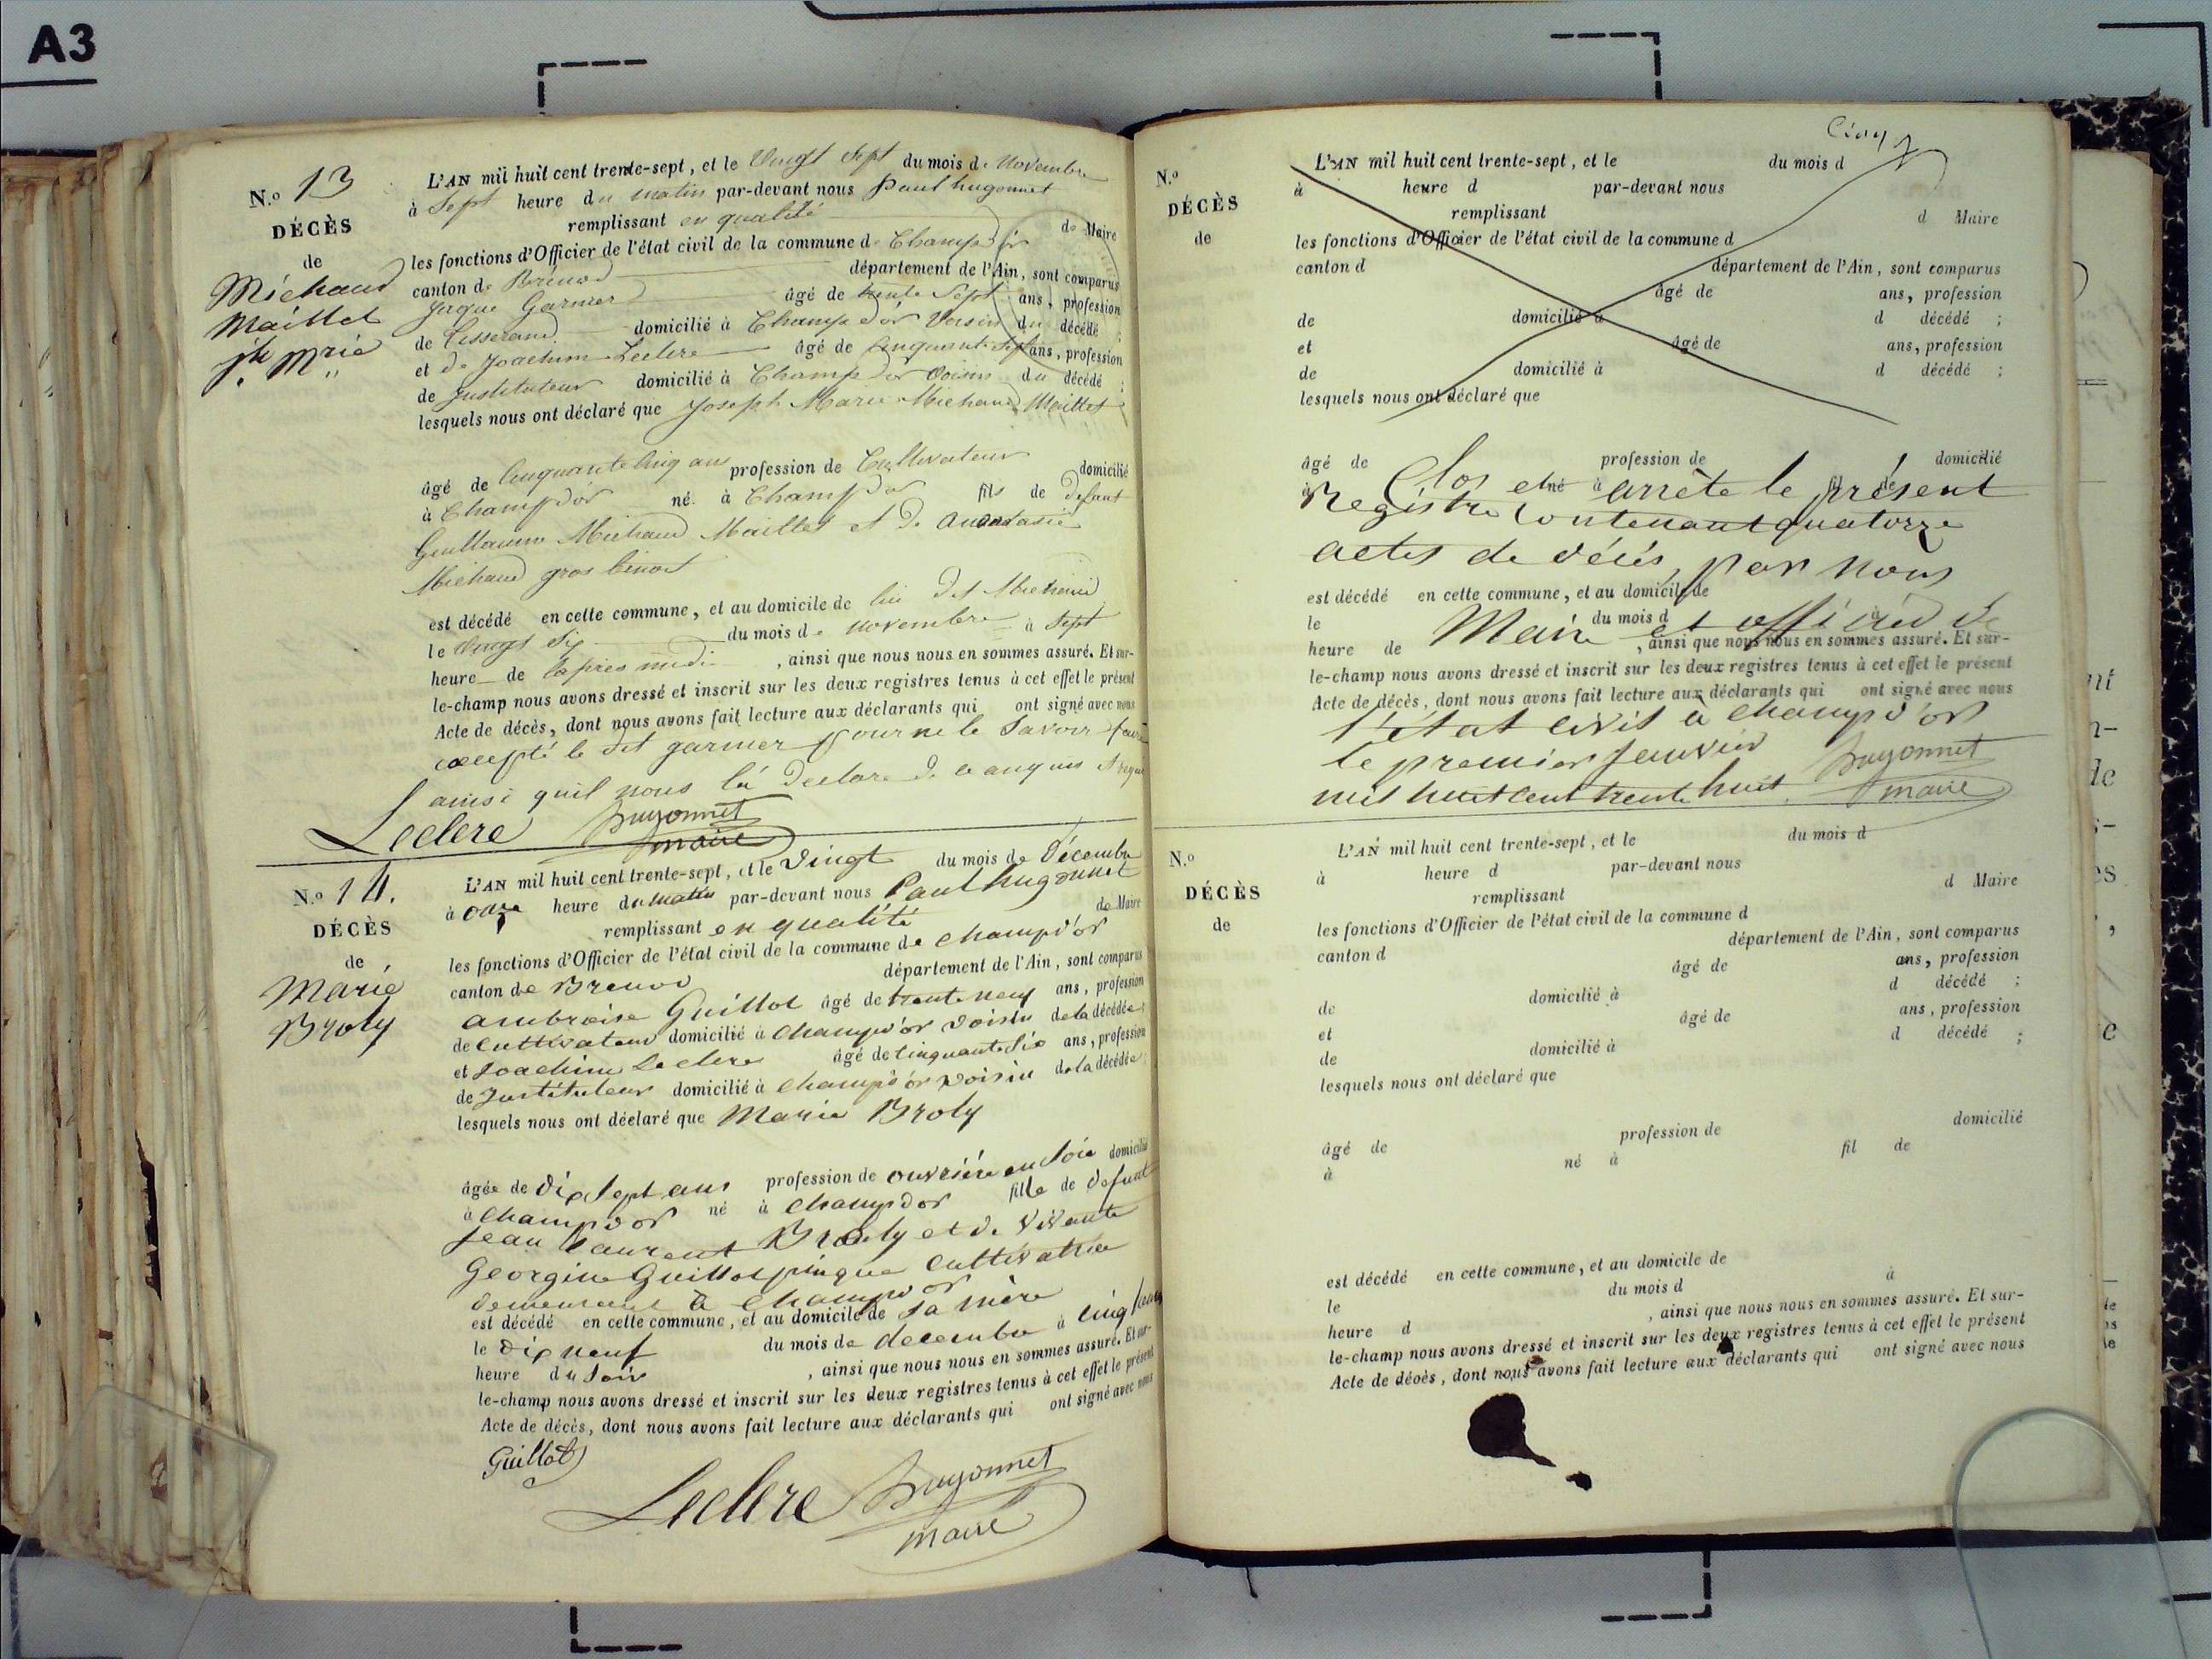 A3
N.o 13
DÉCÈS
de
Michaud
Maillet
jh Mrie
L'AN mil huit cent trente-sept, et le Vingt Sept du mois de novembre
à Sept heure du matin par-devant nous paul hugonnet
remplissant en qualité de Maire
les fonctions d'Officier de l'état civil de la commune de Champd'or
canton de Brénod département de l'Ain, sont comparus
Jaque Garnier âgé de trente Sept ans, profession
de Tisserand domicilié à Champ d'or Voisin du décédé ;
et de Joachim Leclere âgé de Cinquante Sept ans, profession
de Instituteur domicilié à Champ d'or Voisin du décédé ;
lesquels nous ont déclaré que Joseph Marie Michaud Maillet
âgé de Cinquante Cinq ans profession de Cultivateur domicilié
à Champd'or né à Champd'or fils de Defunt
Guillaume Michaud Maillet et de anastasie
Michaud gros benoit
est décédé en cette commune, et au domicile de lui Dit Michaud
le Vingt Six du mois de novembre à Sept
heure de lapres midi , ainsi que nous nous en sommes assuré. Et sur-
le-champ nous avons dressé et inscrit sur les deux registres tenus à cet effet le présent
Acte de décès, dont nous avons fait lecture aux déclarants qui ont signé avec nous
excepté le dit garnier pour ne le Savoir faire
ainsi quil nous la Declare de ce enquis
Leclere hugonnet
maire
N.o 14.
DÉCÈS
de
Marie
Broly
L'AN mil huit cent trente-sept, et le Vingt du mois de Décembre
à onze heure du matin par-devant nous Paul hugonnet
remplissant en qualité de Maire
les fonctions d'Officier de l'état civil de la commune de champd'or
canton de Brenod département de l'Ain, sont comparus
ambroise Guillot âgé de trente neuf ans, profession
de Cultivateur domicilié à Champd'or voisin de la décédée ;
et Joachim Leclere âgé de Cinquante Six ans, profession
de Instituteur domicilié à Champd'or voisin de la décédée ;
lesquels nous ont déclaré que Marie Broly
âgée de Dix Sept ans profession de ouvrière en Soie domicilié
à Champd'or né à Champdor fille de defunt
Jean Laurent Broly et de vivante
Georgine Guillot pinque Cultivatrice
demeurant à Champdor
est décédé en cette commune, et au domicile de Sa mère
le Dix neuf du mois de decembre à Cinq
heure du Soir , ainsi que nous nous en sommes assuré. Et sur-
le-champ nous avons dressé et inscrit sur les deux registres tenus à cet effet le présent
Acte de décès, dont nous avons fait lecture aux déclarants qui ont signé avec nous
Guillot
Leclere hugonnet
maire
Cinq
N.o
DÉCÈS
de
L'AN mil huit cent trente-sept, et le du mois d
à heure d par-devant nous
remplissant d Maire
les fonctions d'Officier de l'état civil de la commune d
canton d département de l'Ain, sont comparus
âgé de ans, profession
de domicilié à d décédé ;
et âgé de ans, profession
de domicilié à d décédé ;
lesquels nous ont déclaré que
âgé de profession de domicilié
à né à fil de
Clos et arrête le présent
Registre Contenant quatorze
actes de décés par nous
est décédé en cette commune, et au domicile de
le du mois d à
Maire et officier de
heure de , ainsi que nous nous en sommes assuré. Et sur-
le-champ nous avons dressé et inscrit sur les deux registres tenus à cet effet le présent
Acte de décès, dont nous avons fait lecture aux déclarants qui ont signé avec nous
l'état civil à champd'or
le premier Janvier hugonnet
mil huit cent trente huit. maire
N.o
DÉCÈS
de
L'AN mil huit cent trente-sept, et le du mois d
à heure d par-devant nous
remplissant d Maire
les fonctions d'Officier de l'état civil de la commune d
canton d département de l'Ain, sont comparus
âgé de ans, profession
de domicilié à d décédé ;
et âgé de ans, profession
de domicilié à d décédé ;
lesquels nous ont déclaré que
âgé de profession de domicilié
à né à fil de
est décédé en cette commune, et au domicile de
le du mois d à
heure d , ainsi que nous nous en sommes assuré. Et sur-
le-champ nous avons dressé et inscrit sur les deux registres tenus à cet effet le présent
Acte de décès, dont nous avons fait lecture aux déclarants qui ont signé avec nous